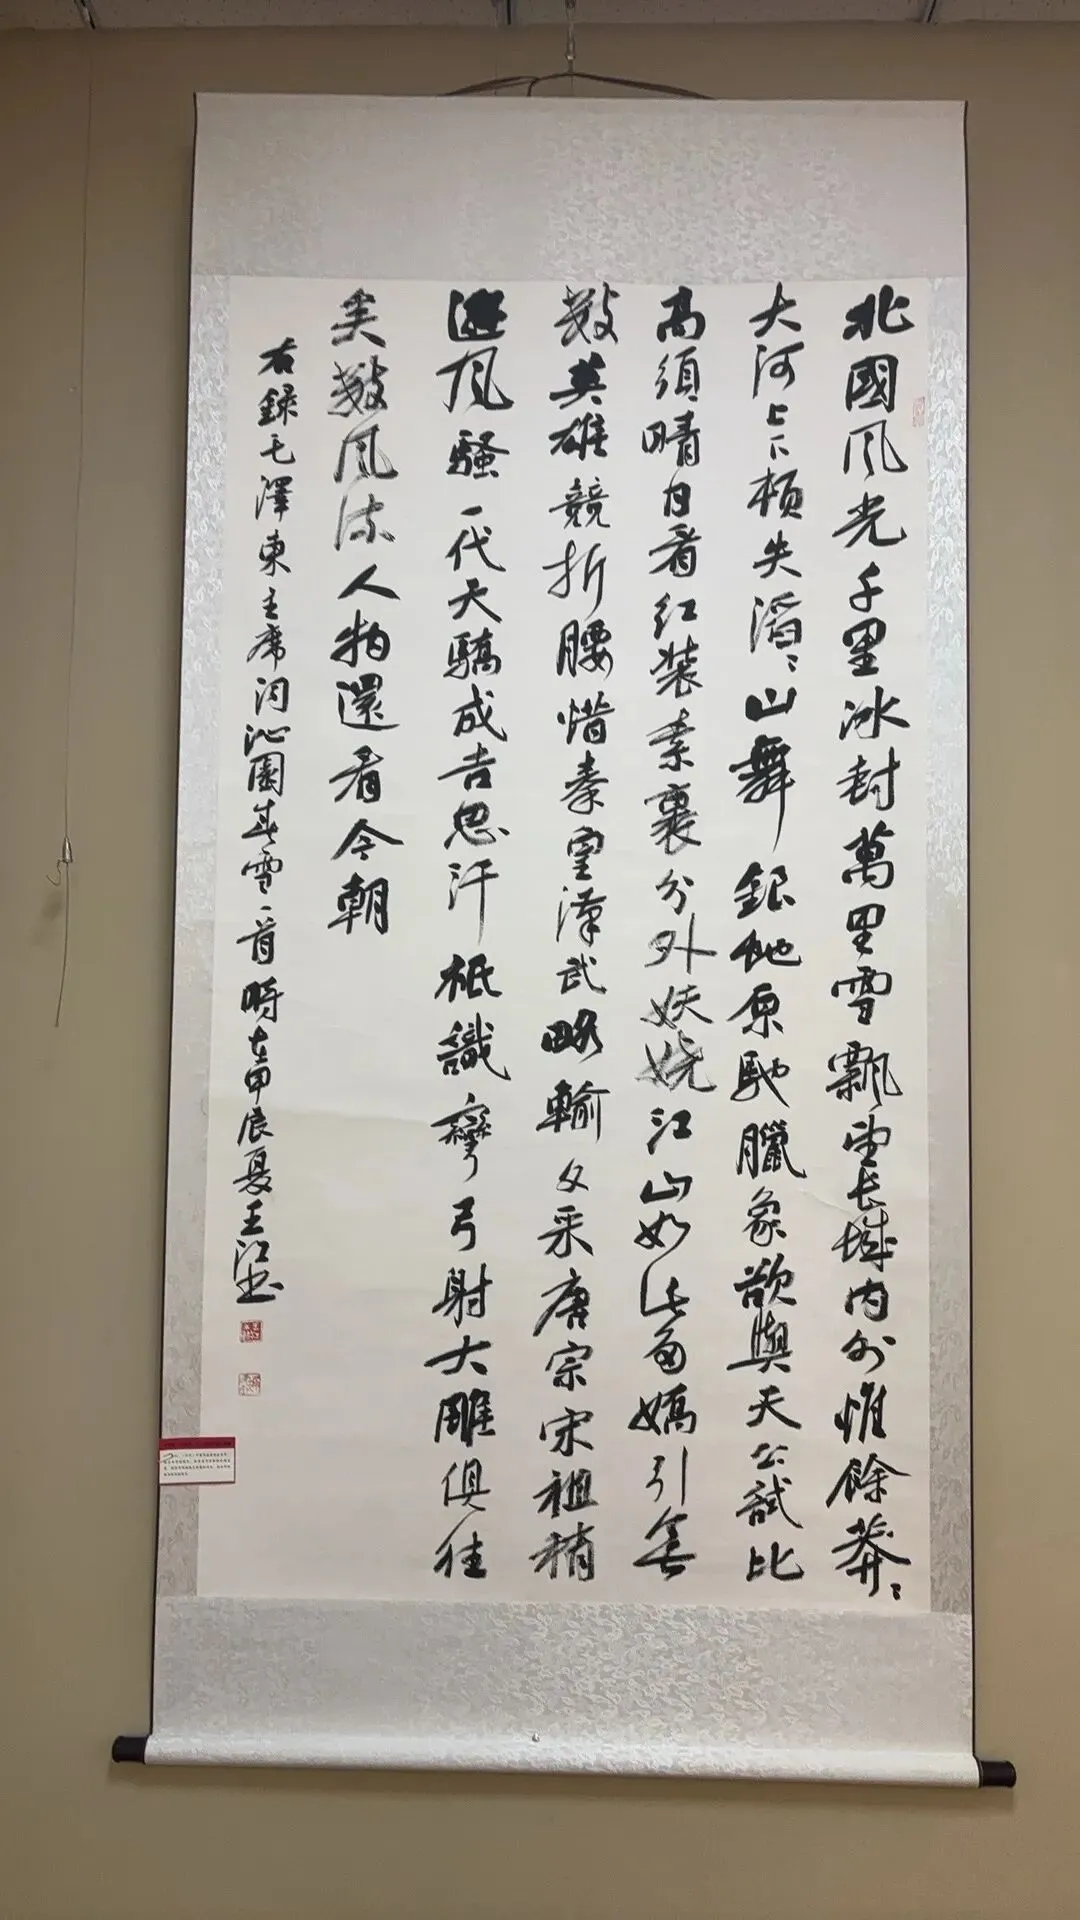 北國風光千里冰封萬里雪飄望長城內外惟餘莽々
大河上下頓失滔々山舞銀蛇原馳臘象欲與天公試比
高須晴日看紅裝素裹分外妖嬈江山如此多嬌引無
數英雄競折腰惜秦皇漢武略輸文采唐宗宋祖稍
遜風騷一代天驕成吉思汗祇識彎弓射大雕俱往
矣數風流人物還看今朝
右錄毛澤東主席词沁園春雪一首時在甲辰夏王江書